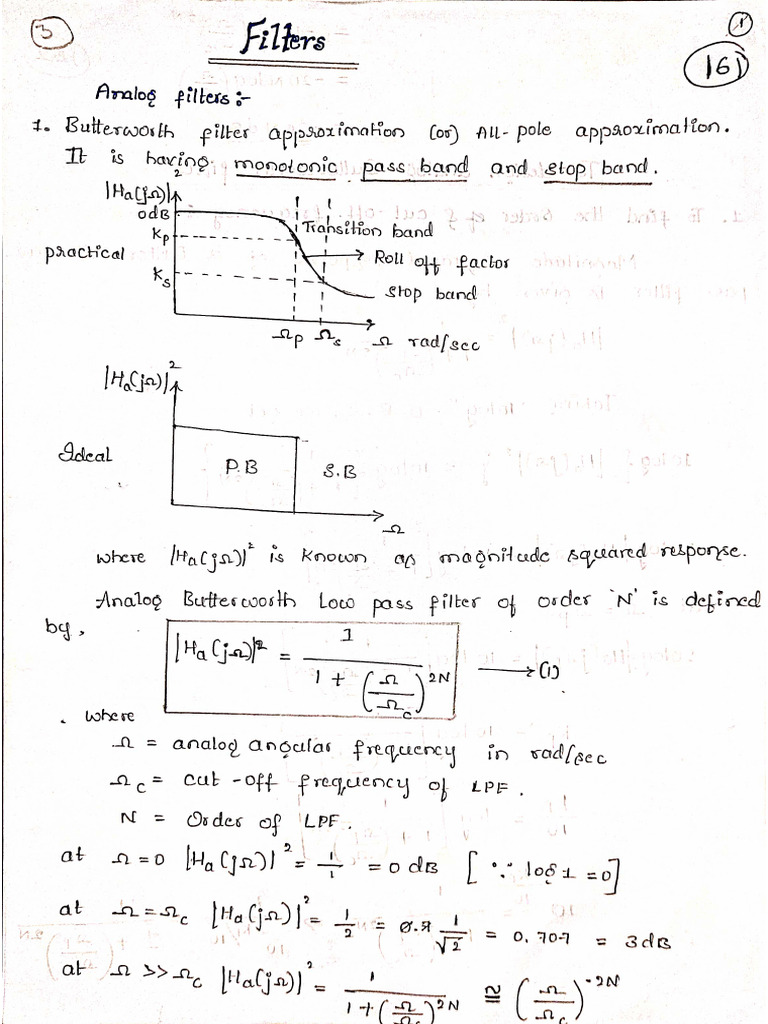 3
Filters
1
161
Analog filters:-
1. Butterworth filter approximation (or) All-pole approximation.
It is having monotonic pass band and stop band.
|Ha(jΩ)|²
0dB
Kp
Ks
practical
Transition band
Roll off factor
Stop band
Ωp Ωs Ω rad/sec
|Ha(jΩ)|²
Ideal
P.B S.B
Ω
where |Ha(jΩ)|² is known as magnitude squared response.
Analog Butterworth Low pass filter of order 'N' is defined
by,
|Ha(jΩ)|² = 1 / (1 + (Ω/Ωc)^2N) ⟶ (1)
where
Ω = analog angular frequency in rad/sec
Ωc = cut-off frequency of LPF.
N = Order of LPF.
at Ω=0 |Ha(jΩ)|² = 1/1 = 0 dB [∵ log 1 = 0]
at Ω=Ωc |Ha(jΩ)|² = 1/2 = 1/√2 = 0.707 = 3dB
at Ω >> Ωc |Ha(jΩ)|² = 1 / (1+(Ω/Ωc)^2N) ≅ (Ω/Ωc)^-2N